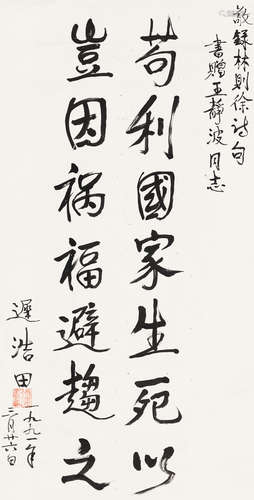 敬録林则徐诗句
書贈王靜波同志
苟利國家生死以
豈因祸福避趨之
遲浩田
一九九一年
三月廿六日